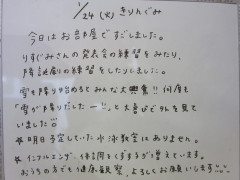 1/24 (火) きりんぐみ
今日はお部屋ですごしました。
りすぐみさんの発表会の練習をみたり、
降誕劇の練習をしたりしました。
雪も降り始めるとみんな大興奮!! 何度も
「雪が降りだしたー!!」と大喜びで外を見て
いました!!
☆明日予定していた水泳教室はありません。
☆インフルエンザ、体調をくずす子が増えています。
おうちの方でも健康観察、よろしくお願いします!!